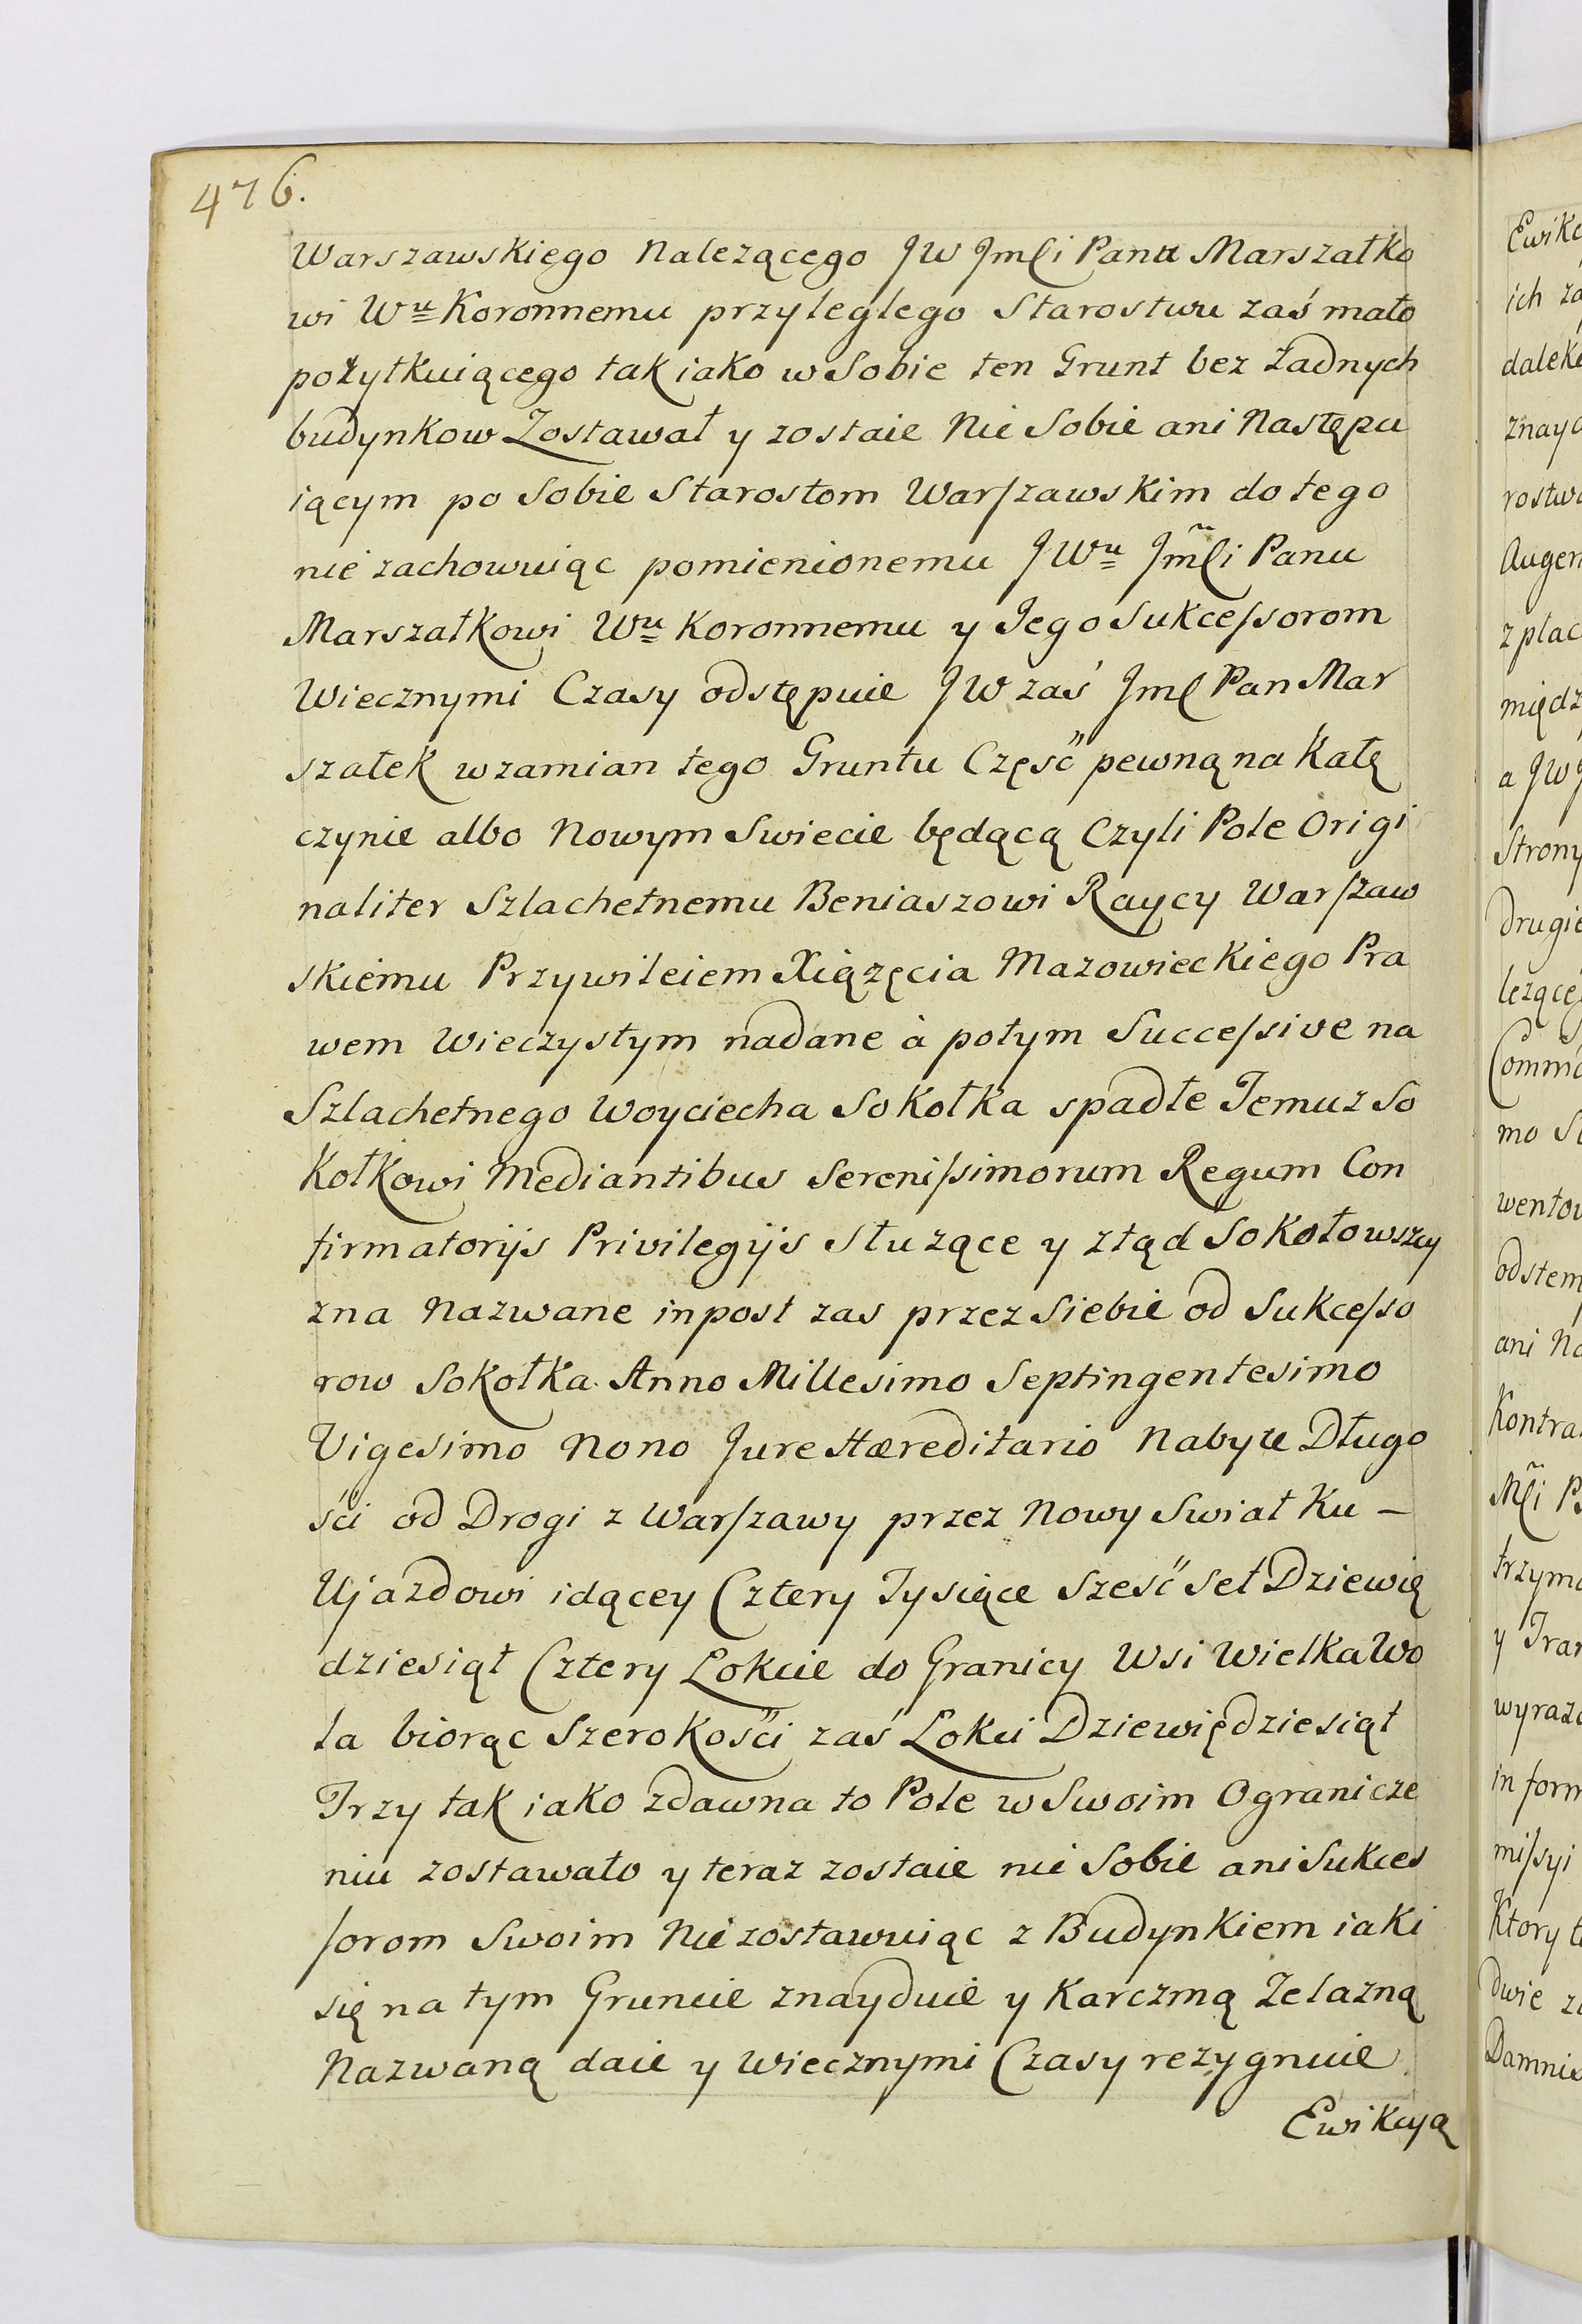 476.
Warszawskiego Nalezącego JW Jmſci Panu Marszałko
wi Wu Koronnemu przyległego Starostwu zaś mało
pożytkuiącego tak iako w Sobie ten Grunt bez żadnych
budynkow Zostawał y zostaie Nie Sobie ani Następu
iącym po Sobie Starostom Warſzawskim do tego
nie zachowuiąc pomienionemu JWu Jmſci Panu
Marszałkowi Wu Koronnemu y Jego Sukceſsorom
Wiecznymi Czasy odstępuie JW zaś Jmſc Pan Mar
szałek w zamian tego Gruntu Część pewną na Kałę
czynie albo Nowym Swiecie będącą Czyli Pole Origi
naliter Szlachetnemu Beniaszowi Raycy Warſzaw
skiemu Przywileiem Xiązęcia Mazowieckiego Pra
wem Wieczystym nadane à potym Succeſsive na
Szlachetnego Woyciecha Sokołka spadłe Temuz So
kołkowi Mediantibus Sereniſsimorum Regum Con
firmatorijs Privilegijs służące y ztąd Sokołowszcy
zna Nazwane in post zas przez Siebie od Sukceſso
row Sokołka Anno Millesimo Septingentesimo
Vigesimo Nono Jure Hæreditario Nabyte Długo
ści od Drogi z Warſzawy przez Nowy Swiat Ku –
Ujazdowi idącey Cztery Tysiące Sześć Set Dziewię
dziesiąt Cztery Łokcie do Granicy Wsi Wielka Wo
la biorąc Szerokości zaś Łokci Dziewiędziesiąt
Trzy tak iako zdawna to Pole w Swoim Ogranicze
niu zostawało y teraz zostaie nie Sobie ani Sukces
ſorom Swoim Nie zostawuiąc z Budynkiem iaki
się na tym Gruncie znayduie y Karczmą Żelazną
Nazwaną daie y Wiecznymi Czasy rezygnuie
Ewikcyą